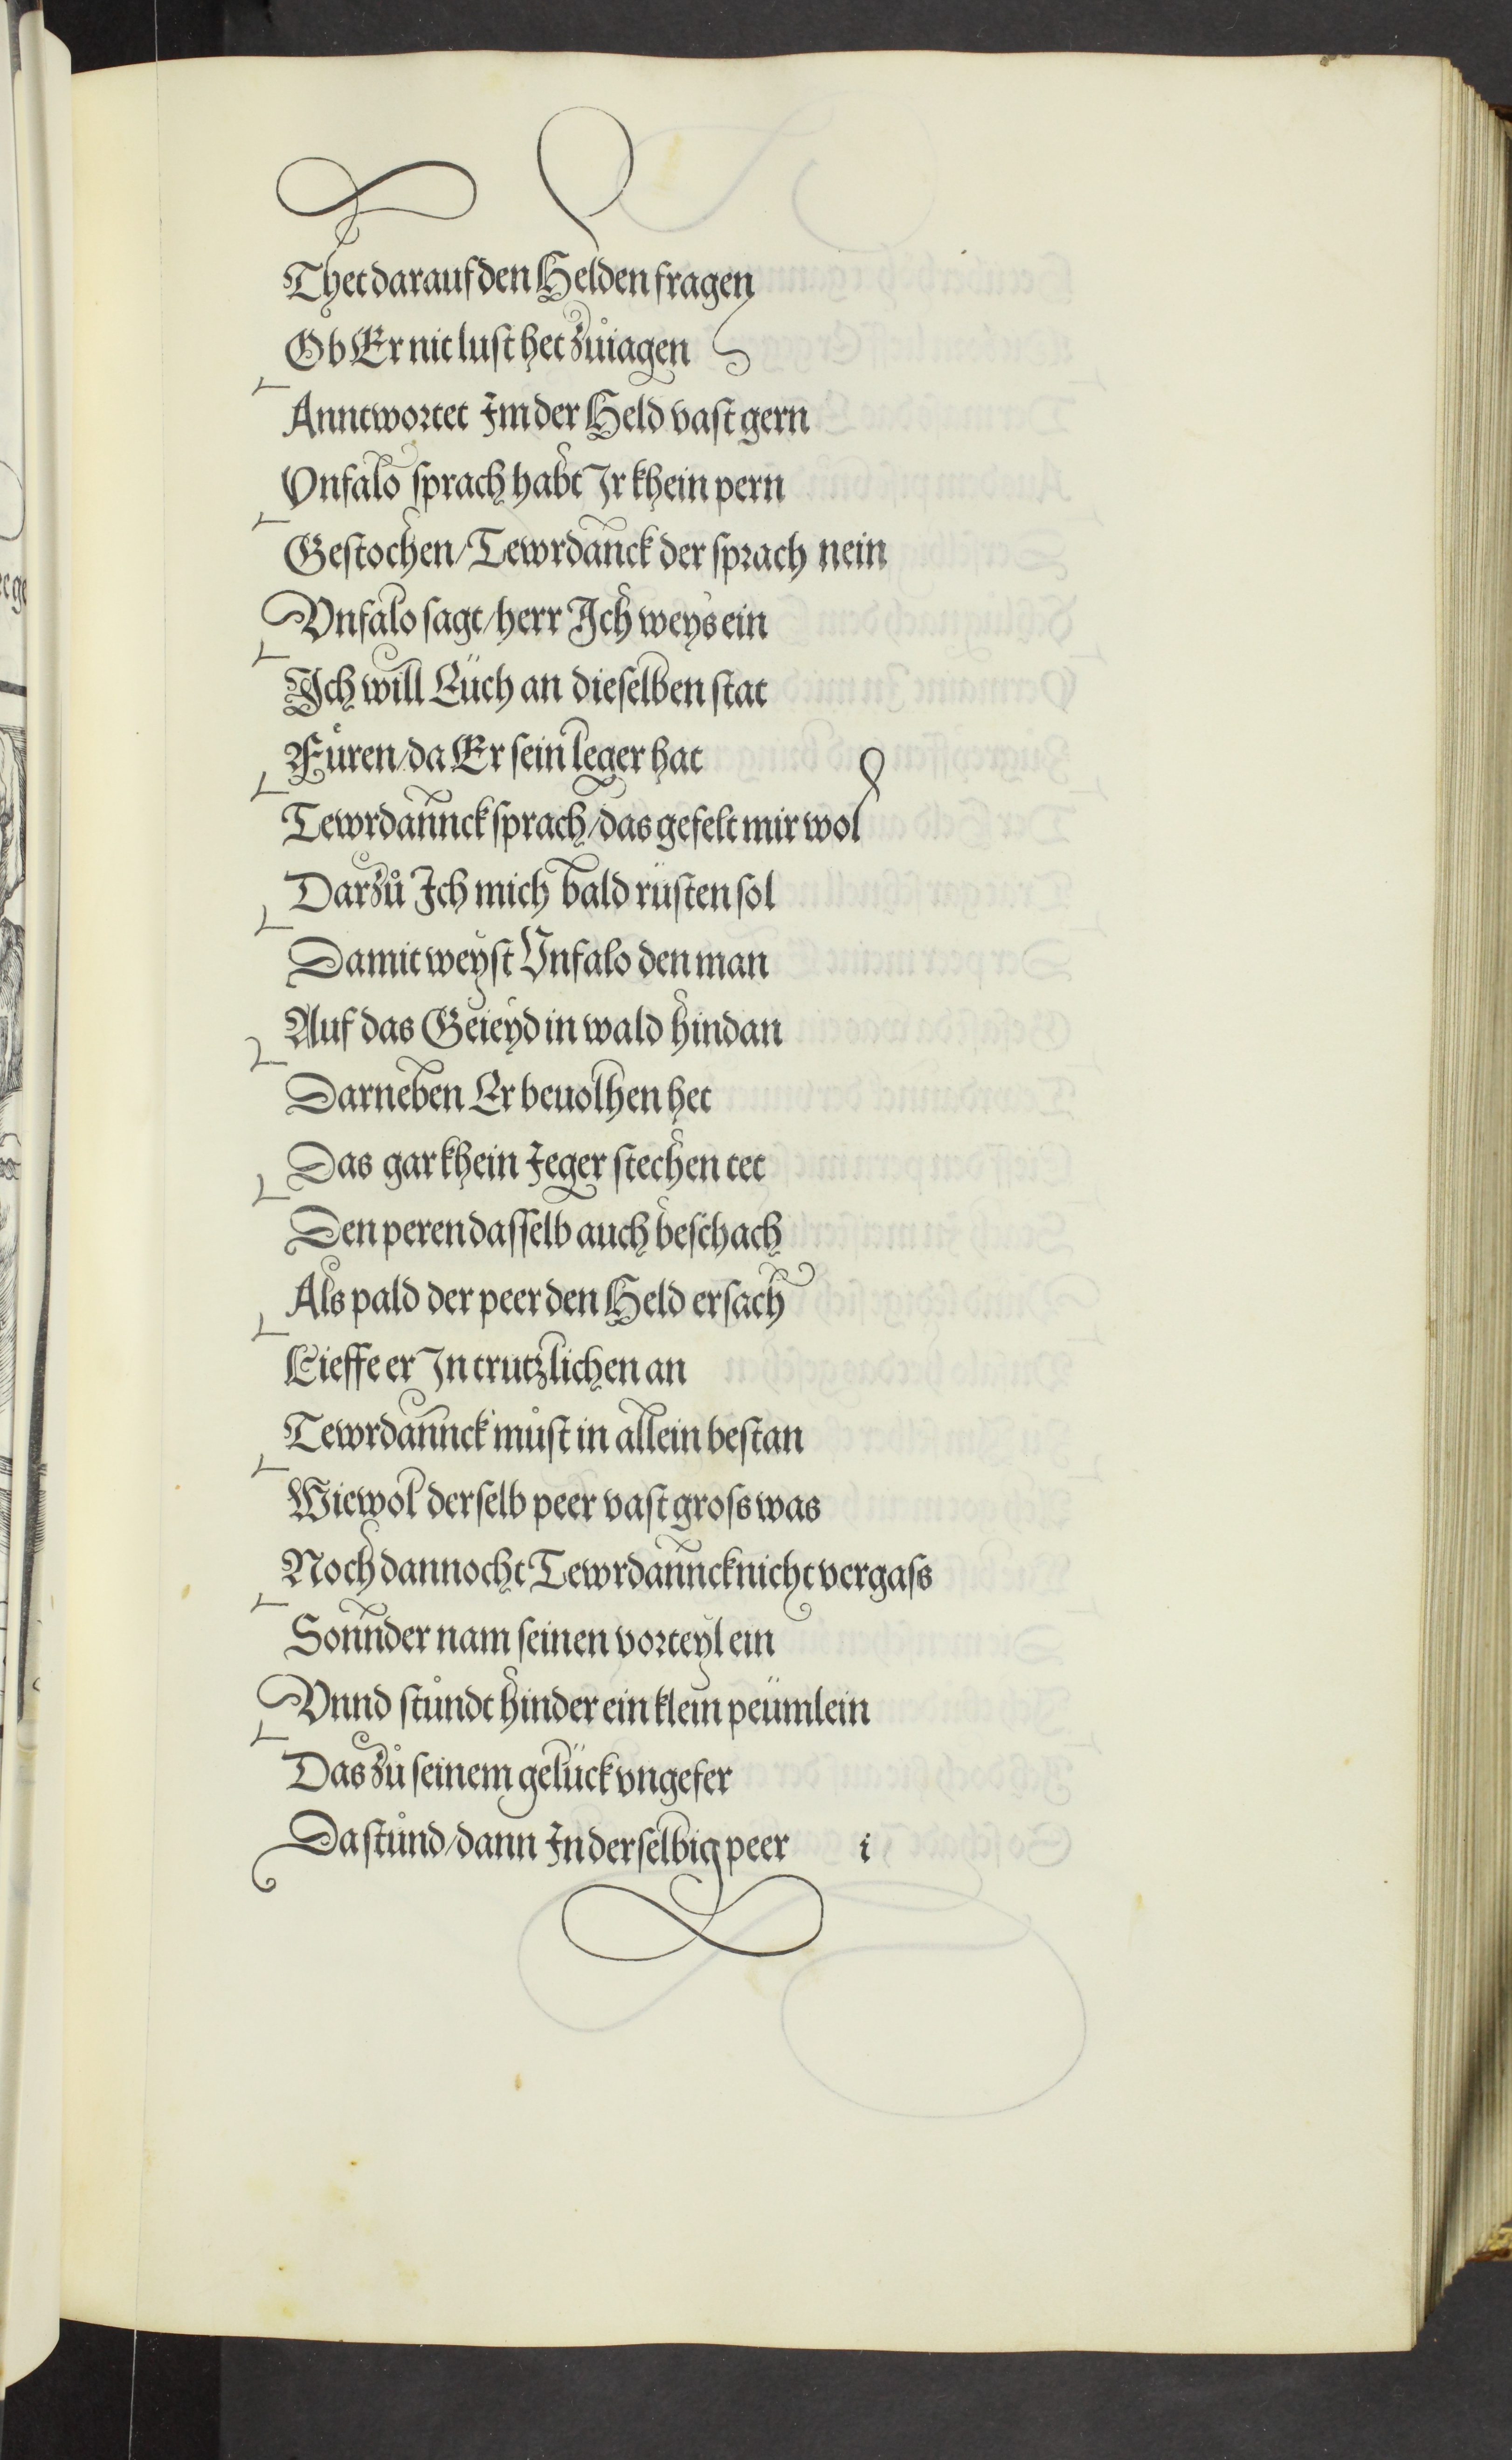 Thet darauf den Helden fragen
Ob Er nit lust het zůiagen
Anntwortet Im der Held vast gern
Vnfalo sprach habt Ir khein pern
Gestochen/Tewrdannck der sprach nein
Vnfalo sagt/herr Ich weys ein
Ich will Eüch an dieselben stat
Füren/da Er sein leger hat
Tewrdannck sprach/das gefelt mir wol
Darzů Ich mich bald rüsten sol
Damit weyst Vnfalo den man
Auf das Geieyd in wald hindan
Darneben Er beuolhen het
Das gar khein Jeger stechen tet
Den peren dasselb auch beschach
Als pald der peer den Held ersach
Lieffe er In trutzlichen an
Tewrdannck můst in allein bestan
Wiewol derselb peer vast gross was
Noch dannocht Tewrdannck nicht vergass
Sonnder nam seinen vorteyl ein
Vnnd stůndt hinder ein klein peümlein
Das zů seinem gelück vngefer
Da stůnd/dann In derselbig peer i